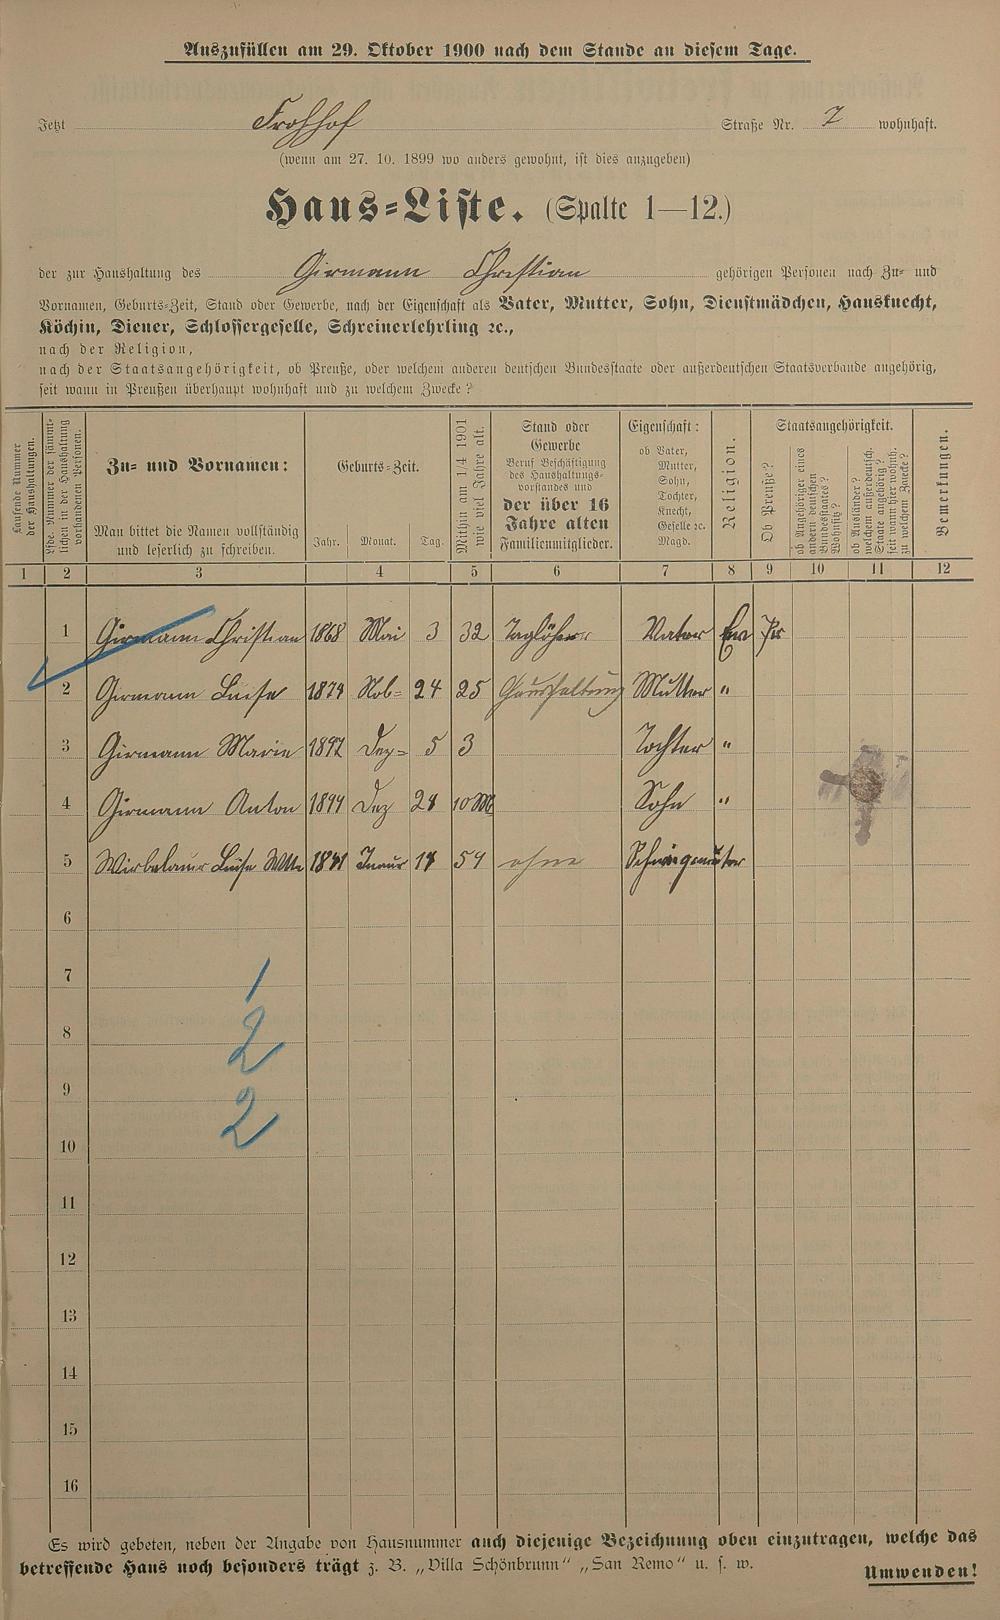 Auszufüllen am 29. Oktober 1900 nach dem Stande an diesem Tage.
Jetzt Frohhof Straße Nr. 7 wohnhaft.
(wenn am 27. 10. 1899 wo anders gewohnt, ist dies anzugeben)
Haus-Liste. (Spalte 1—12.)
der zur Haushaltung des Girmann Christian gehörigen Personen nach Zu- und
Vornamen, Geburts-Zeit, Stand oder Gewerbe, nach der Eigenschaft als Vater, Mutter, Sohn, Dienstmädchen, Hausknecht,
Köchin, Diener, Schlossergeselle, Schreinerlehrling ꝛc.,
nach der Religion,
nach der Staatsangehörigkeit, ob Preuße, oder welchem anderen deutschen Bundesstaate oder außerdeutschen Staatsverbande angehörig,
seit wann in Preußen überhaupt wohnhaft und zu welchem Zwecke?
Laufende Nummer der Haushaltungen.
Lfde. Nummer der sämmtlichen in der Haushaltung vorhandenen Personen.
Zu- und Vornamen:
Man bittet die Namen vollständig
und leserlich zu schreiben.
Geburts-Zeit.
Jahr. Monat. Tag.
Mithin am 1/4 1901 wie viel Jahre alt.
Stand oder
Gewerbe
Beruf Beschäftigung
des Haushaltungs-
vorstandes und
der über 16
Jahre alten
Familienmitglieder.
Eigenschaft:
ob Vater,
Mutter,
Sohn,
Tochter,
Knecht,
Geselle ꝛc.
Magd.
Religion.
Staatsangehörigkeit.
Ob Preuße?
ob Angehöriger eines andern deutschen Bundesstaates? Wohnsitz?
ob Ausländer? welchem außerdeutsch. Staate angehörig? seit wann hier wohnh. zu welchem Zwecke?
Bemerkungen.
1 2 3 4 5 6 7 8 9 10 11 12
1 Girmann Christian 1868 Mai 3 32 Vater Ew Pr
2 Girmann Luise 1874 Nob= 24 25 Haushaltung Mutter "
3 Girmann Marie 1897 Dez= 5 3 Tochter "
4 Girmann Anton 1899 Dez 28 10 M Sohn "
5 Luise Wtw 18 ohne
6
7 1
8 2
9
10 2
11
12
13
14
15
16
Es wird gebeten, neben der Angabe von Hausnummer auch diejenige Bezeichnung oben einzutragen, welche das
betreffende Haus noch besonders trägt z. B. „Villa Schönbrunn" „San Remo" u. s. w.
Umwenden!